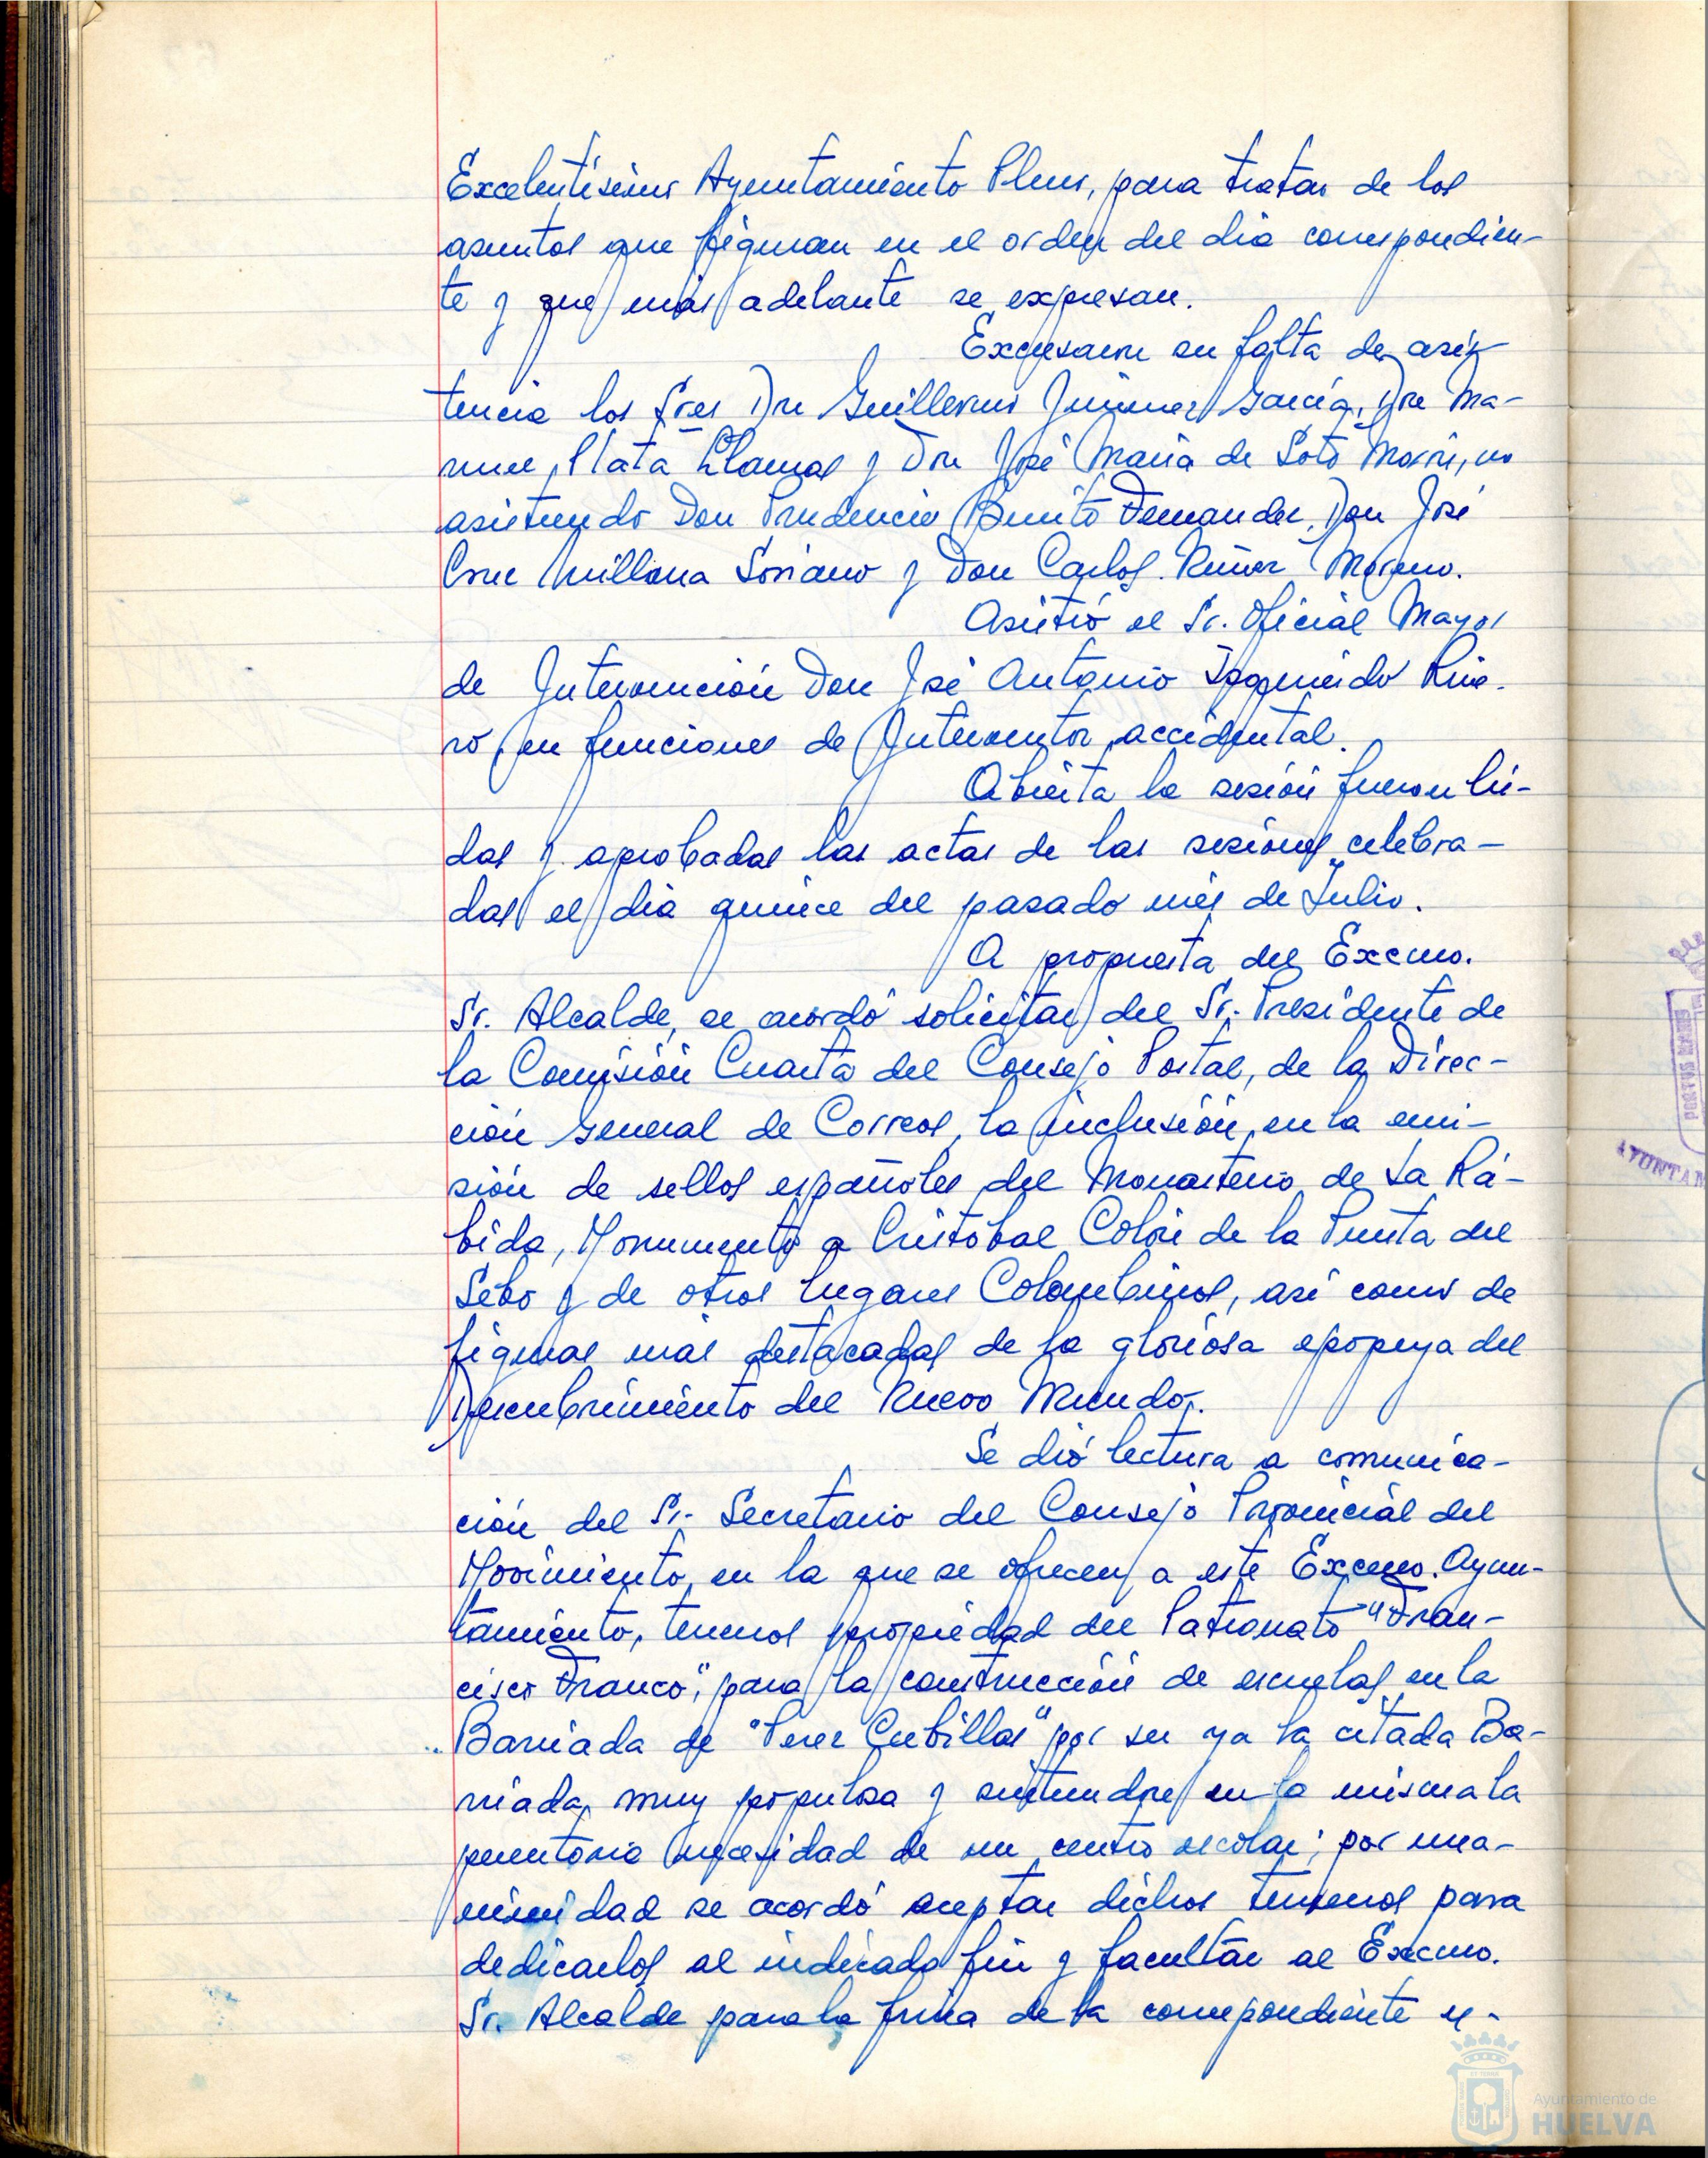 Excelentísimo Ayuntamiento Pleno, para tratar de los
asuntos que figuran en el orden del dia correspondien-
te y que más adelante se expresan.
Excusaron su falta de asis-
tencia los Sres Don Guillermo Jimenez García, Don Ma-
nuel Plata Llamas y Don José María de Soto Morón, no
asistiendo Don Prudencio Benito Fernandez, Don José
Cruz Millana Soriano y Don Carlos Núñez Moreno.
Asistió el Sr. Oficial Mayor
de Intervención Don José Antonio Izquierdo Rive-
ro, en funciones de Interventor accidental.
Abierta la sesión fueron leí-
das y aprobadas las actas de las sesiones celebra-
das el dia quince del pasado mes de Julio.
A propuesta del Excmo.
Sr. Alcalde, se acordó solicitar del Sr. Presidente de
la Comisión Cuarta del Consejo Postal, de la Direc-
ción General de Correos, la inclusión, en la emi-
sión de sellos españoles del Monasterio de La Rá-
bida, Monumento a Cristobal Colón de la Punta del
Sebo y de otros lugares Colombinos, así como de
figuras más destacadas de la gloriosa epopeya del
Descubrimiento del Nuevo Mundo.
Se dió lectura a comunica-
ción del Sr. Secretario del Consejo Provincial del
Movimiento, en la que se ofrecen a este Excmo. Ayun-
tamiento, terrenos propiedad del Patronato "Fran-
cisco Franco", para la construcción de escuelas en la
Barriada de "Perez Cubillas" por ser ya la citada Ba-
rriada, muy populosa y sintiendose en la misma la
perentoria necesidad de un centro escolar; por una-
nimidad se acordó aceptar dichos terrenos para
dedicarlos al indicado fin y facultar al Excmo.
Sr. Alcalde para la firma de la correspondiente es-
PORTUS MARIS
AYUNTAM
Ayuntamiento de
HUELVA